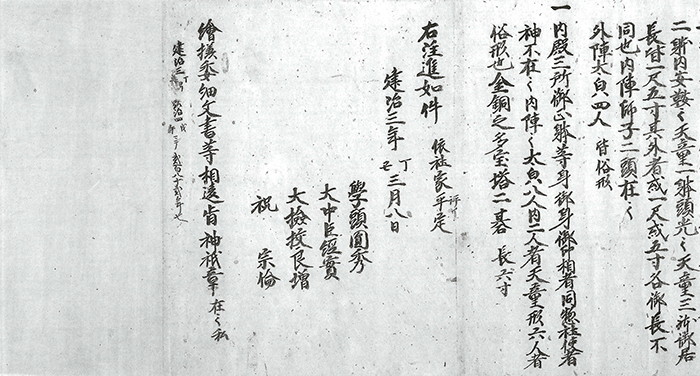 二躰内女鞁〻天童一躰頭光〻天童三躰御居
長皆一尺五寸其外者或一尺或五寸各御長不
同也内陣師子二頭在〻
外陣太自四人 皆俗形
一 内殿三所御正躰等身御身御相者同惣社使者
神不在〻内陣〻太自八人内二人者天童形六人者
俗形也金銅之多宝塔二基 長六寸
右注進如件 依社家平定
建治三年 丁丑 三月八日
學頭圓秀
大中臣經實
大撿挍良增
祝 宗倫
繪樣委細文書等相違旨神祇章在之私
建治三 丁 弘治四